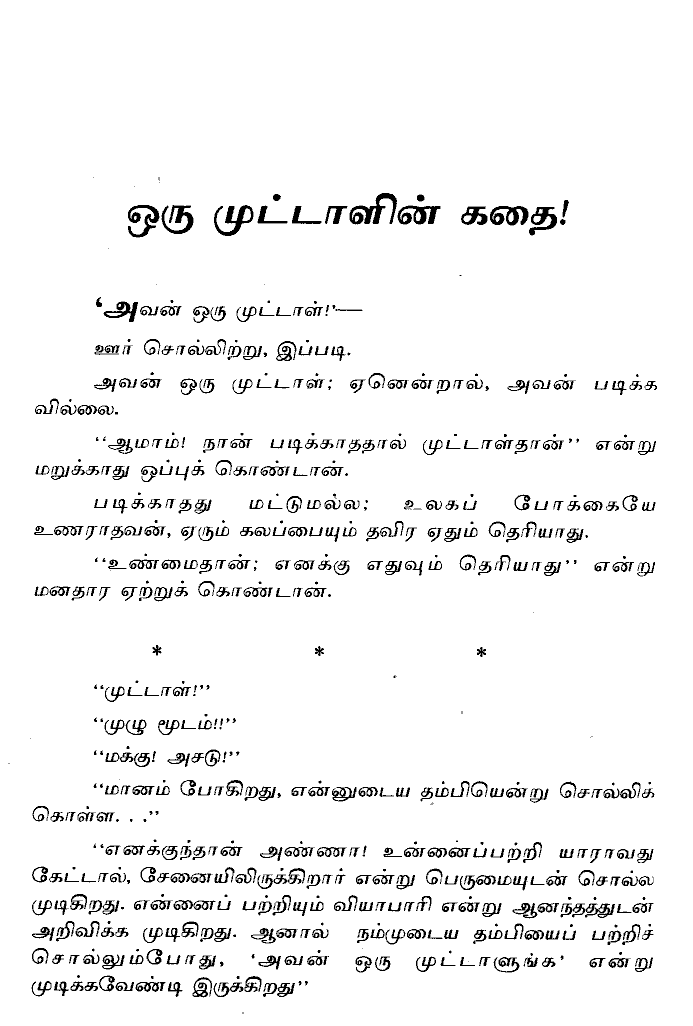 ஒரு முட்டாளின் கதை!
‘அவன் ஒரு முட்டாள்!’—
ஊர் சொல்லிற்று, இப்படி.
அவன் ஒரு முட்டாள்; ஏனென்றால், அவன் படிக்க
வில்லை.
‘‘ஆமாம்! நான் படிக்காததால் முட்டாள்தான்’’ என்று
மறுக்காது ஒப்புக் கொண்டான்.
படிக்காதது மட்டுமல்ல; உலகப் போக்கையே
உணராதவன், ஏரும் கலப்பையும் தவிர ஏதும் தெரியாது.
‘‘உண்மைதான்; எனக்கு எதுவும் தெரியாது’’ என்று
மனதார ஏற்றுக் கொண்டான்.
* * *
‘‘முட்டாள்!’’
‘‘முழு மூடம்!!’’
‘‘மக்கு! அசடு!’’
‘‘மானம் போகிறது, என்னுடைய தம்பியென்று சொல்லிக்
கொள்ள. . .’’
‘‘எனக்குந்தான் அண்ணா! உன்னைப்பற்றி யாராவது
கேட்டால், சேனையிலிருக்கிறார் என்று பெருமையுடன் சொல்ல
முடிகிறது. என்னைப் பற்றியும் வியாபாரி என்று ஆனந்தத்துடன்
அறிவிக்க முடிகிறது. ஆனால் நம்முடைய தம்பியைப் பற்றிச்
சொல்லும்போது, ‘அவன் ஒரு முட்டாளுங்க’ என்று
முடிக்கவேண்டி இருக்கிறது’’